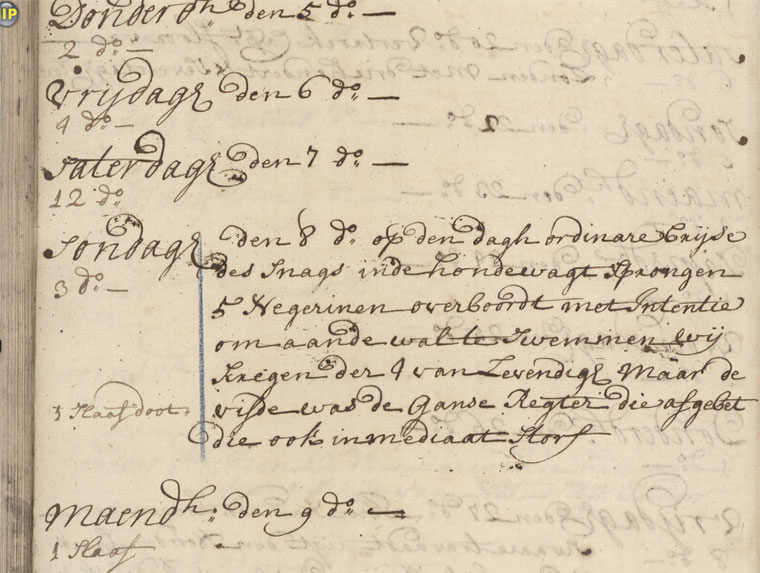 IP
Donderdh den 5 do —
2 do —
Vrijdags den 6 do —
4 do —
Saterdags den 7 do —
12 do
Sondags den 8 do op den dagh ordinare Brijse
3 do — des Snags inde hondewagt Sprongen
5 Negerinen overboordt met Intentie
om aande wal te Swemmen wij
Kregen der 4 van Levendigs Maar de
1 Slaaf doot vifde was de Ganse Regter die afgebet
die ook inmediaat Storf
Maendh: den 9 do —
1 Slaaf